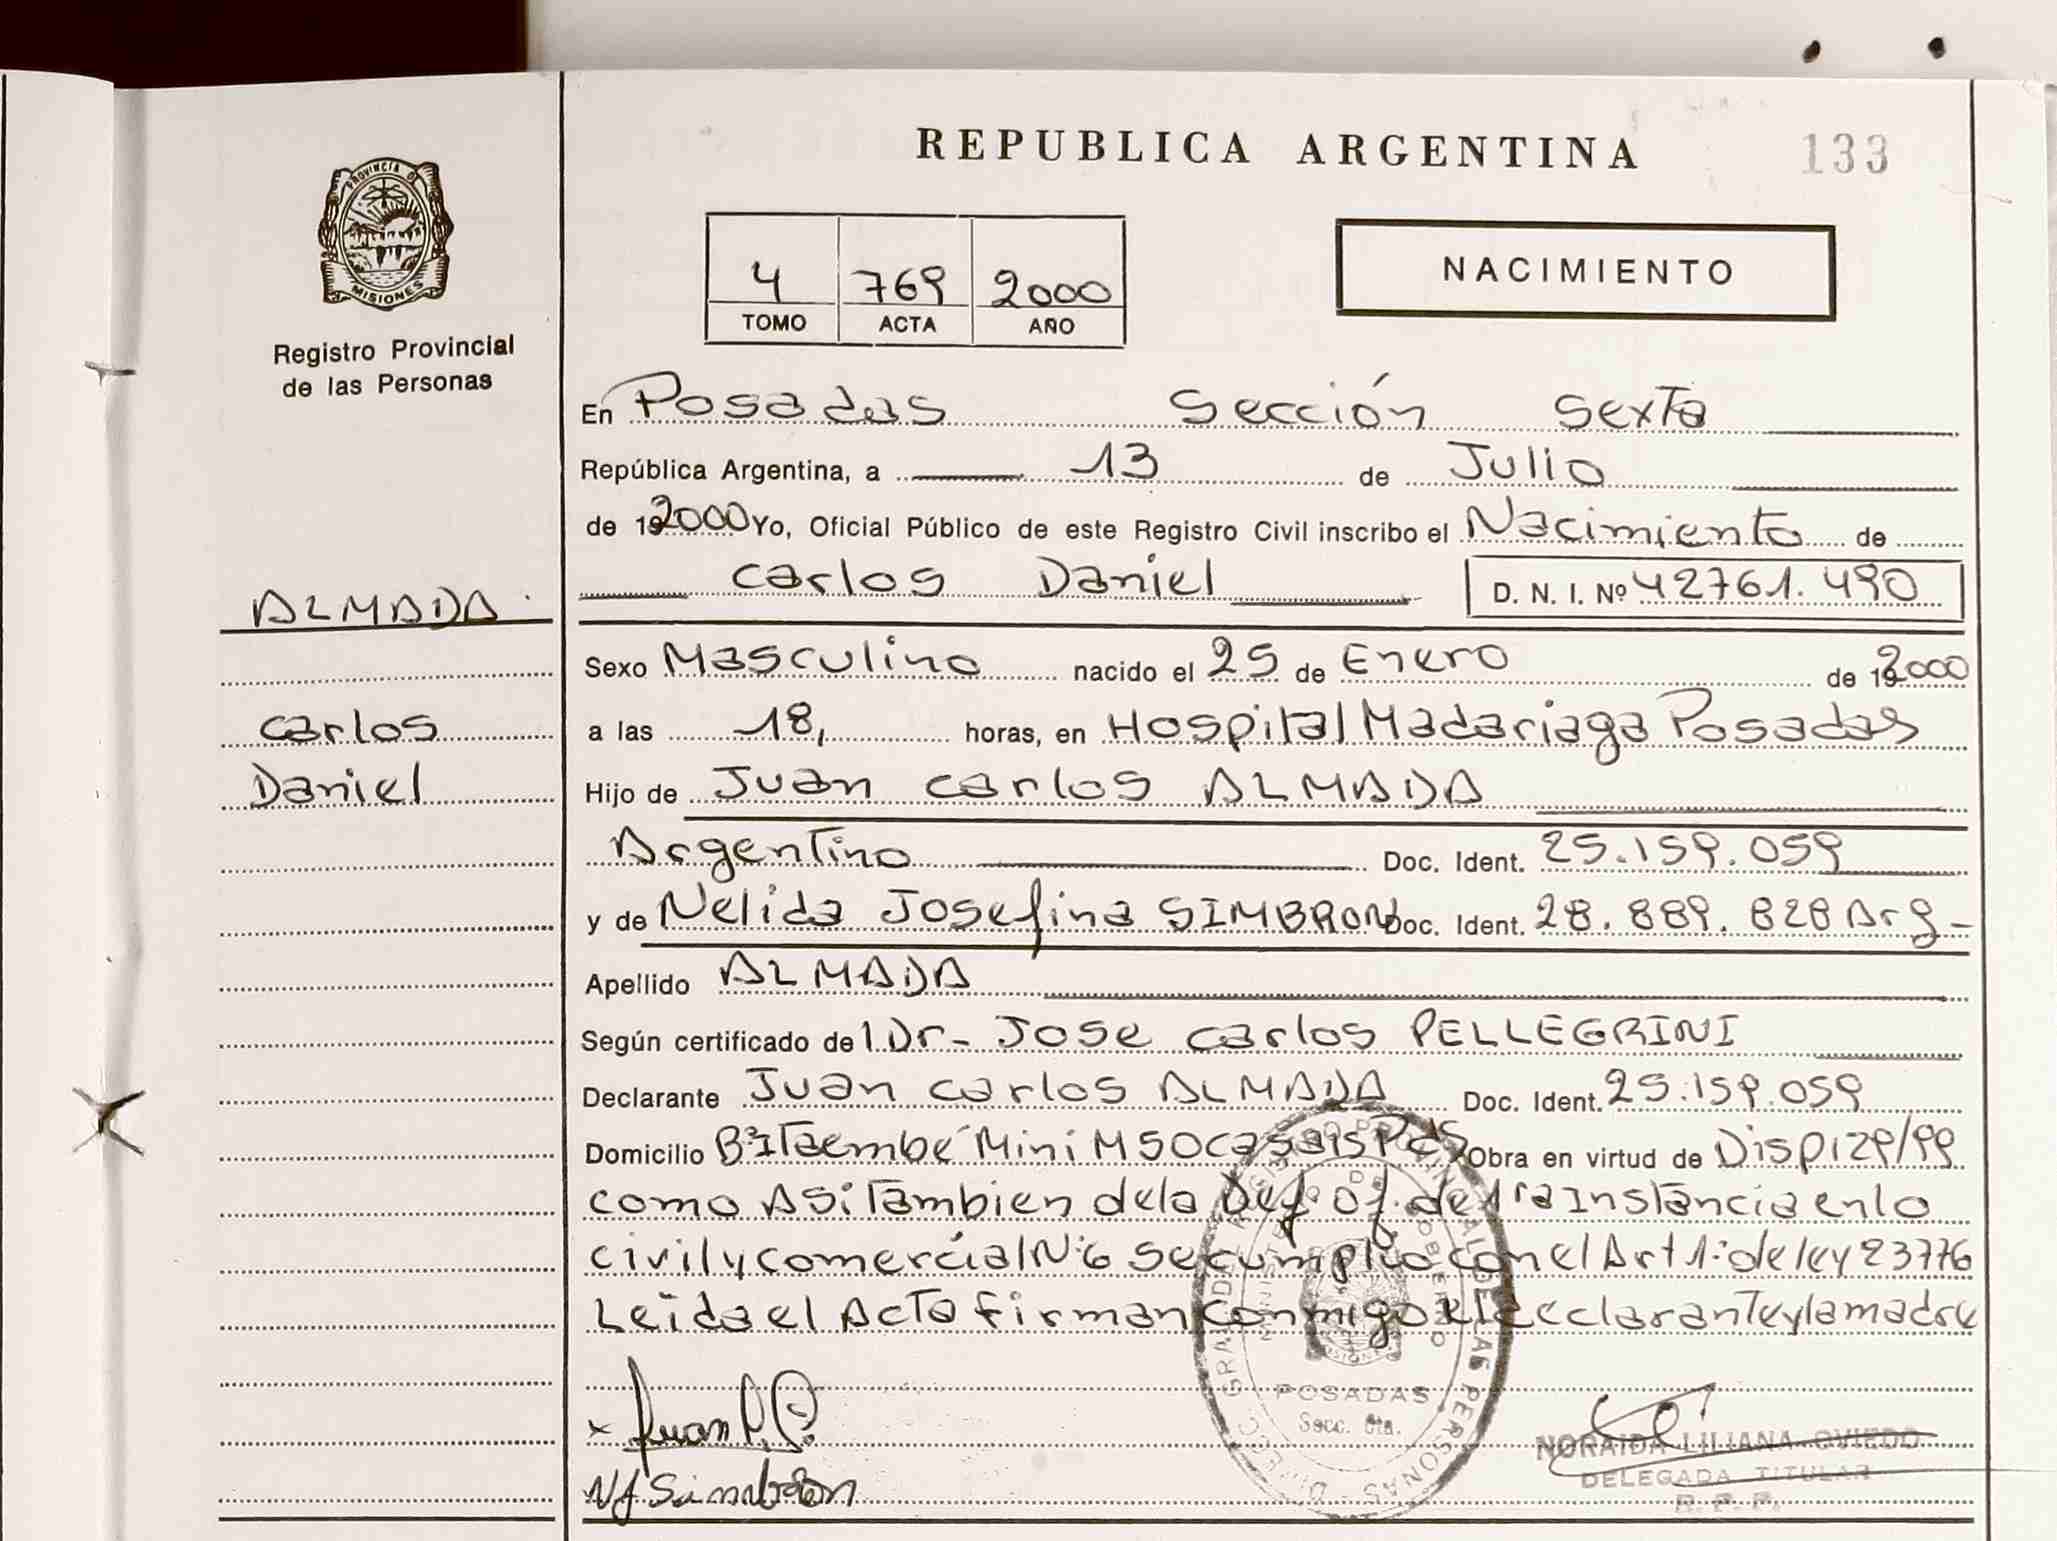 REPUBLICA ARGENTINA
133
PROVINCIA DE
MISIONES
Registro Provincial
de las Personas
4 769 2000
TOMO ACTA AÑO
NACIMIENTO
En Posadas Sección Sexta
República Argentina, a 13 de Julio
de 192000 Yo, Oficial Público de este Registro Civil inscribo el Nacimiento de
Carlos Daniel D. N. I. Nº 42761.490
ALMADA
Carlos
Daniel
Sexo Masculino nacido el 25 de Enero de 192000
a las 18, horas, en Hospital Madariaga Posadas
Hijo de Juan Carlos ALMADA
Argentino Doc. Ident. 25.159.059
y de Nelida Josefina SIMBRON Doc. Ident. 28.889.828 Arg-
Apellido ALMADA
Según certificado del Dr- Jose Carlos PELLEGRINI
Declarante Juan Carlos ALMADA Doc. Ident. 25.159.059
Domicilio Bº Itaembé Mini M 50 casa 15 Pdas Obra en virtud de Disp 129/99
como Asi Tambien de la Def. Of. de 1ra Instancia en lo
civil y comercial Nº 6 se cumplio con el Art 1º de ley 23776
Leida el Acta firman conmigo el declarante y la madre
Juan
NJ Simbron
POSADAS
Secc. 6ta.
NORAIDA LILIANA OVIEDO
DELEGADA TITULAR
R. P. P.